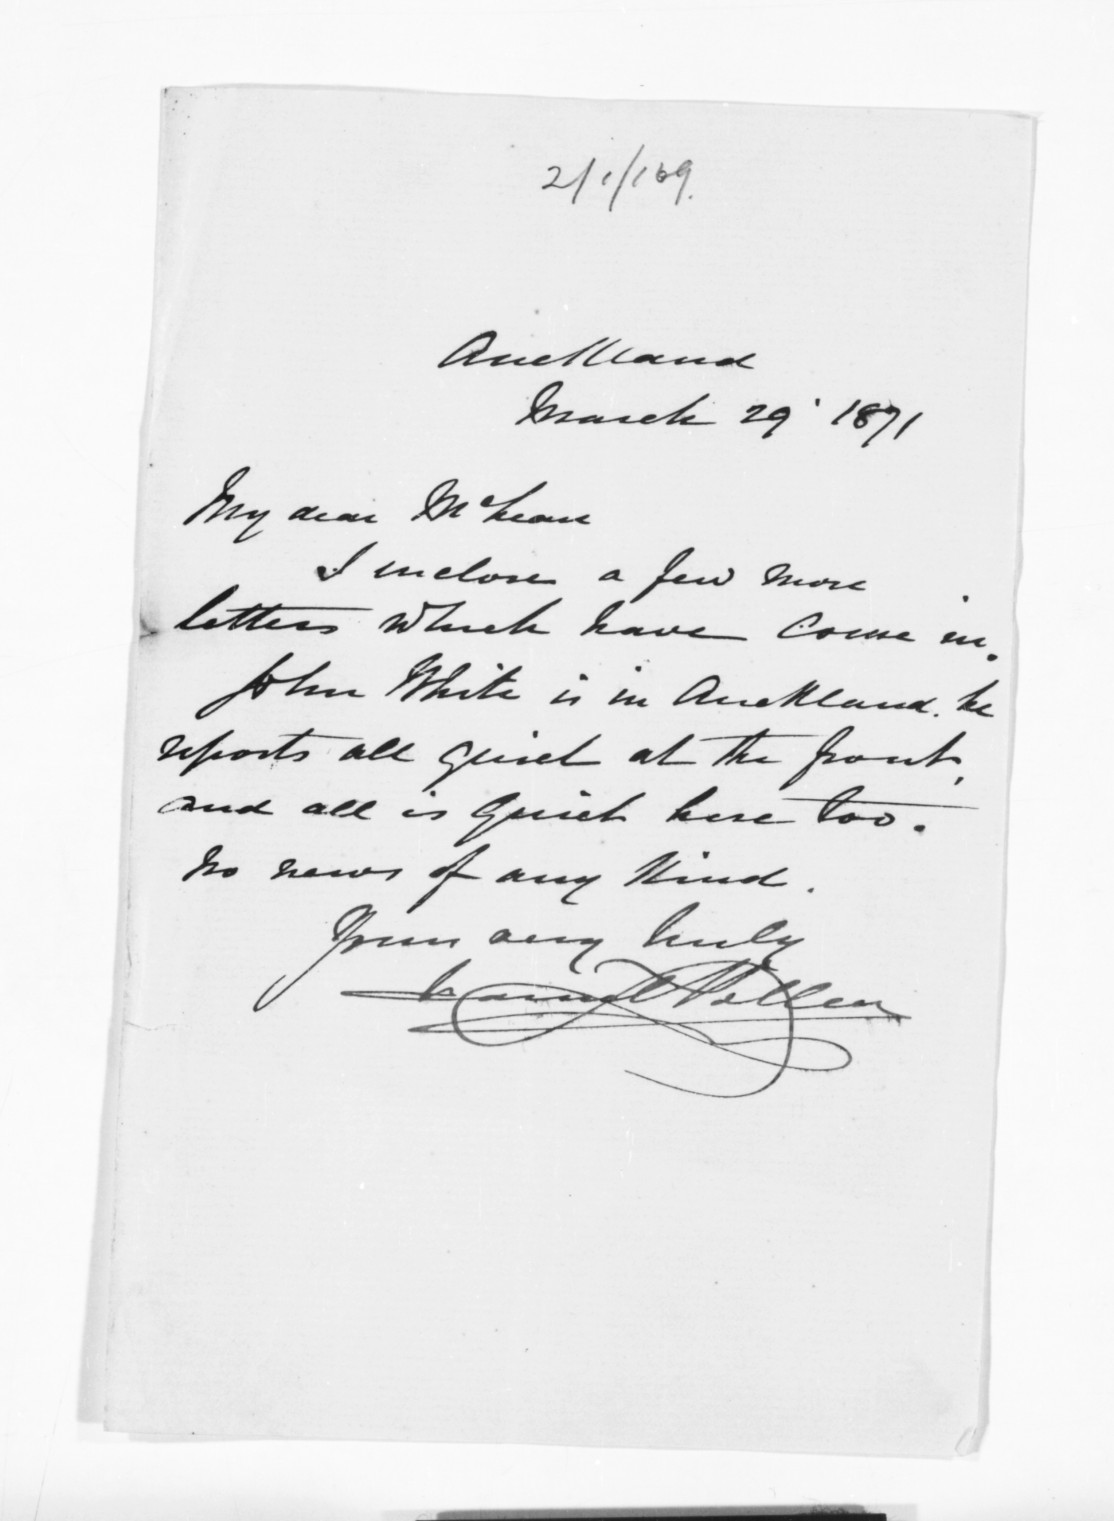 2/1/169.
Auckland
March 29' 1871
My dear McLean
I inclose a few more
letters which have come in.
John White is in Auckland. he
reports all quiet at the front,
and all is quiet here too.
No news of any kind.
Yours very truly
Daniel Pollen